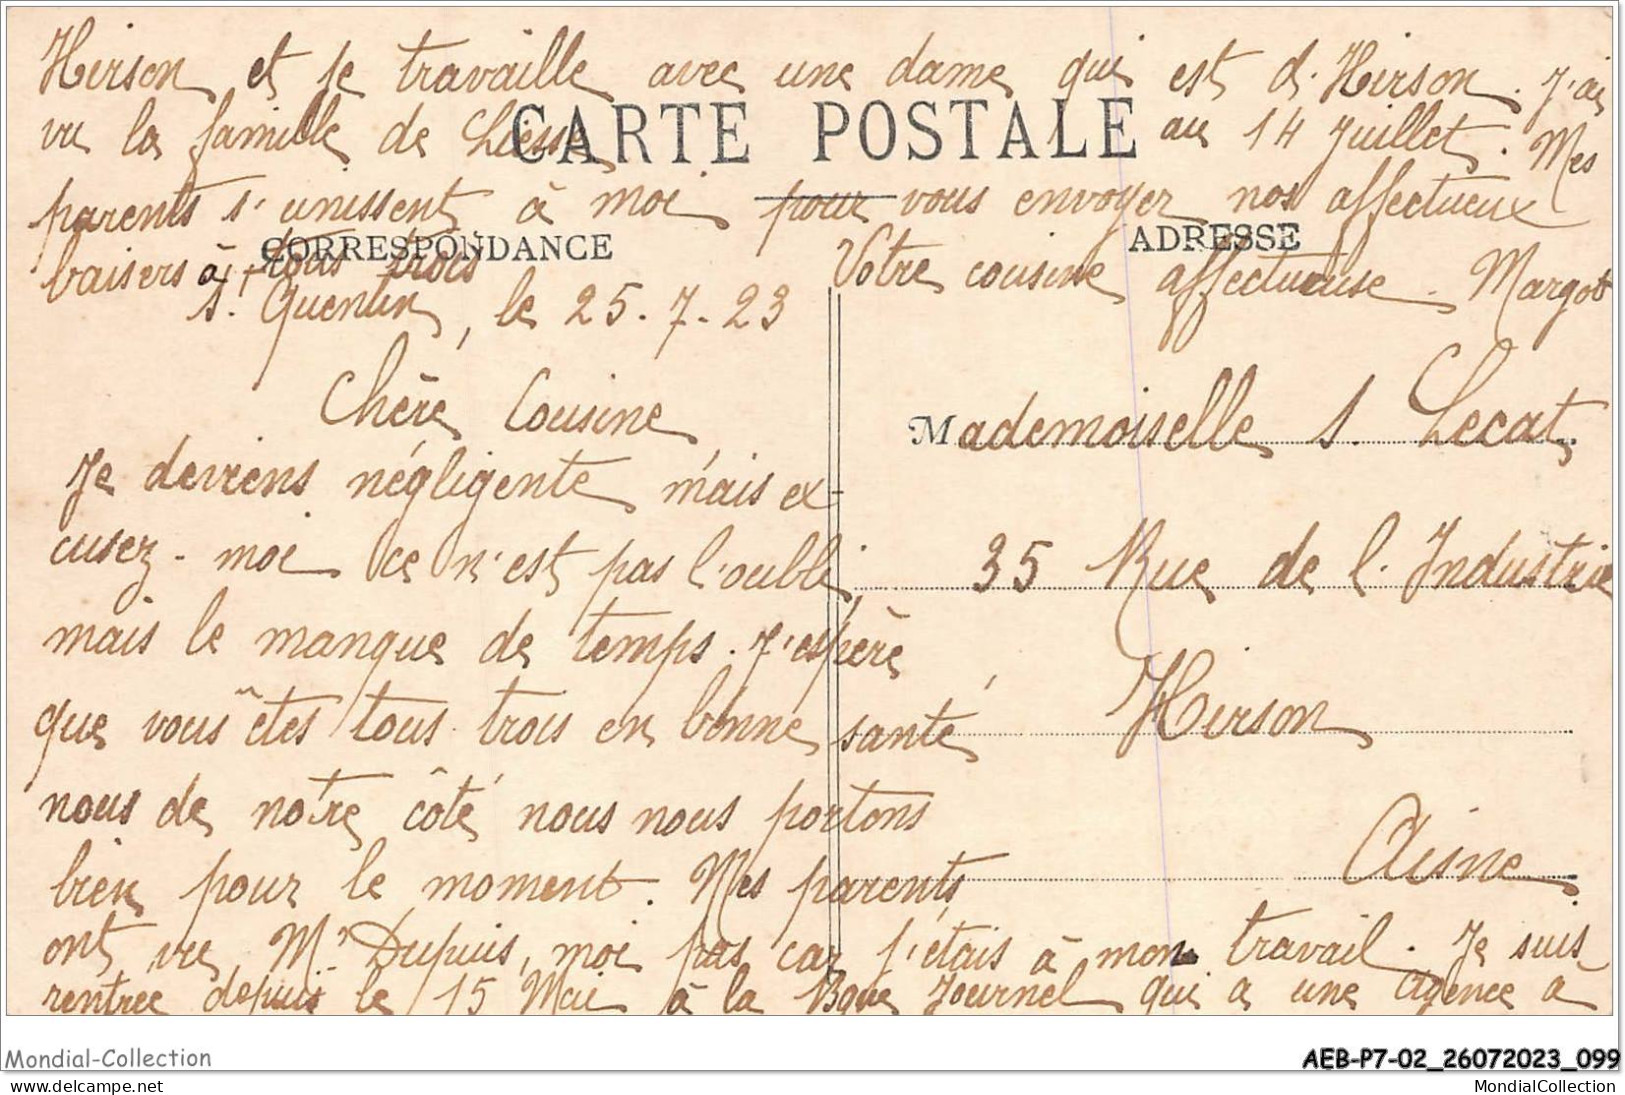 Hirson et je travaille avec une dame qui est d'Hirson. J'ai
vu la famille de Liesse au 14 Juillet. Mes
CARTE POSTALE
parents s'unissent à moi pour vous envoyer nos affectueux
baisers à tous trois Votre cousine affectueuse. Margot
CORRESPONDANCE
ADRESSE
St. Quentin, le 25.7.23
Chère Cousine
Je deviens négligente mais ex-
cusez-moi ce n'est pas l'oubli
mais le manque de temps. J'espère
que vous êtes tous trois en bonne santé
nous de notre côté nous nous portons
bien pour le moment. Mes parents
ont vu Mr Dupuis, moi pas car j'étais à mon travail. Je suis
rentrée depuis le 15 Mai à la Bque Journel qui a une agence à
Mademoiselle S. Lecat
35 Rue de l'Industrie
Hirson
Aisne
Mondial-Collection
AEB-P7-02_26072023_099
www.delcampe.net
MondialCollection